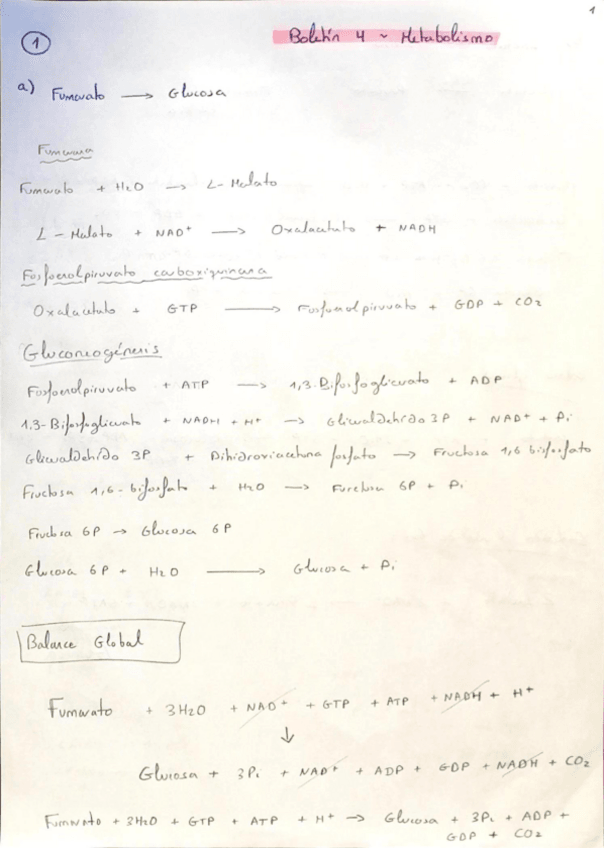 1
Boletín 4 ~ Metabolismo
1
a) Fumarato → Glucosa
Fumarasa
Fumarato + H2O → L-Malato
L-Malato + NAD+ → Oxalacetato + NADH
Fosfoenolpiruvato carboxiquinasa
Oxalacetato + GTP → Fosfoenolpiruvato + GDP + CO2
Gluconeogénesis
Fosfoenolpiruvato + ATP → 1,3-Bifosfoglicerato + ADP
1,3-Bifosfoglicerato + NADH + H+ → Gliceraldehído 3P + NAD+ + Pi
Gliceraldehído 3P + Dihidroxiacetona fosfato → Fructosa 1,6 bisfosfato
Fructosa 1,6-bifosfato + H2O → Fructosa 6P + Pi
Fructosa 6P → Glucosa 6P
Glucosa 6P + H2O → Glucosa + Pi
Balance Global
Fumarato + 3H2O + NAD+ + GTP + ATP + NADH + H+
↓
Glucosa + 3Pi + NAD+ + ADP + GDP + NADH + CO2
Fumarato + 3H2O + GTP + ATP + H+ → Glucosa + 3Pi + ADP +
GDP + CO2